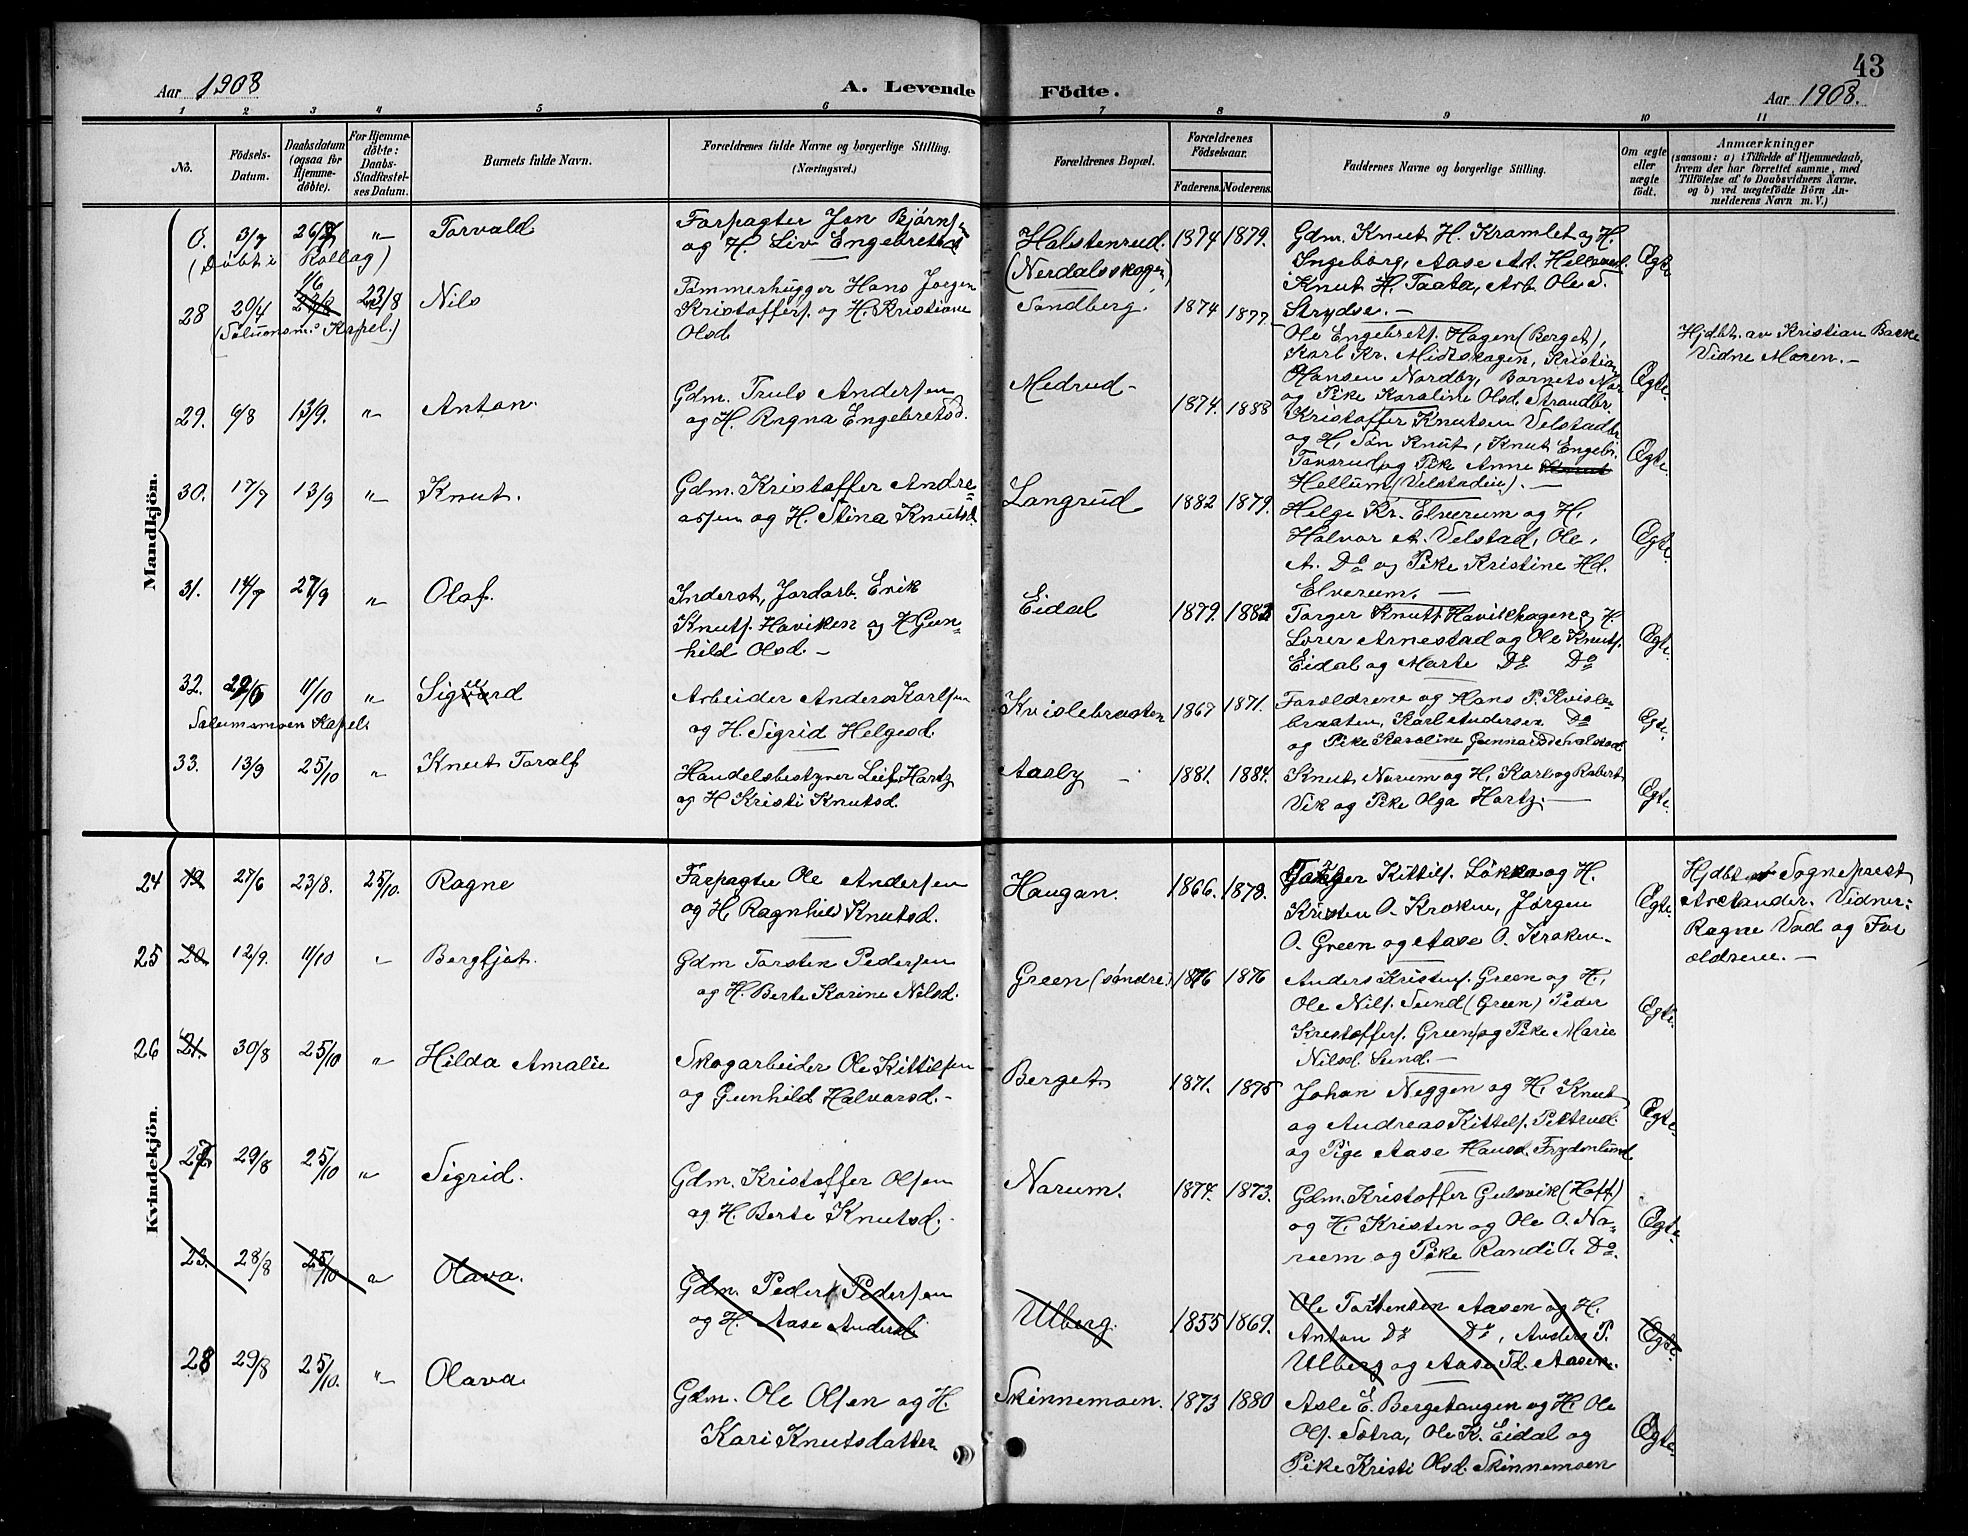 43
Aar 1908
A. Levende Födte.
Aar 1908.
1 2 3 4 5 6 7 8 9 10 11
No.
Födsels-Datum.
Daabsdatum (ogsaa for Hjemme-döbte).
For Hjemme-döbte: Daabs-Stadfæstel-ses Datum.
Barnets fulde Navn.
Forældrenes fulde Navne og borgerlige Stilling. (Næringsvei.)
Forældrenes Bopæl.
Forældrenes Födselsaar.
Faderens. Moderens.
Faddernes Navne og borgerlige Stilling.
Om ægte eller uægte födt.
Anmærkninger
(saasom: a) i Tilfælde af Hjemmedaab, hvem der har forrettet samme, med Tilföielse af to Daabsvidners Navne, og b) ved uægtefödte Börn An-melderens Navn m. V.)
Mandkjön.
0. 3/7 26/7 " Torvald
(Døbt i Rollag)
Forpagter Jon Bjørns.
og H. Liv Engebretsd
Halstenrud.
(Nerdalsskogen)
1874 1879.
Gdm. Knut H. Kramlet og H.
Ingeborg, Aase Ad. Hellerud.
Knut H. Taata, Arb. Ole S.
Strydse.-
Ægte
28 20/4 1/6 23/8 23/8 Nils
(Solumsm. Kapel.)
Tømmerhugger Hans Jørgen
Kristoffers. og H. Kristiane
Olsd
Sandberg.
1874 1877.
Ole Engebrets. Hagen (Berget),
Karl Kr. Midtskogen, Kristian
Hansen Nordby, Barnets Mor
og Pike Karoline Olsd. Strandbr.
Ægte.
Hjdbt. av Kristian Bakke
Vidne Moren.-
29. 6/8 13/9. " Anton.
Gdm. Truls Andersen
og H. Ragna Engebretsd.
Medrud-
1874. 1888
Kristoffer Knutsen Velstadbr
og H, Søn Knut, Knut Engebr.
Tansrud og Pike Anne Knut
Hellum (Velstadeie).-
Ægte.
30. 17/7 13/9 " Knut.
Gdm. Kristoffer Andre=
assen og H. Stina Knutsd
Langrud
1882 1879.
Helge Kr. Elverum og H.
Halvor A. Velstad, Ole
A. Do og Pike Kristine Hd.
Elverum.-
Ægte.
31. 14/7 27/9 " Olaf.
Inderst, Jordarb. Erik
Knuts. Haviken og H Gun=
hild Olsd.-
Eidal
1879. 1882
Torger Knuts Havikhagen og H.
Lorer Arnestad og Ole Knuts.
Eidal og Marte Do Do
Ægte.
32. 29/6 11/10 " Sigvard
Solumsmoen Kapel.
Arbeider Anders Karlsen
og H. Sigrid Helgesd.
Kvislebraaten
1867 1871.
Forældrene og Hans P. Kvisle-
braaten, Karl Andersen Do
og Pike Karoline Gunnarsd
Ægte.
33. 13/9 25/10 " Knut Toralf
Handelsbestyrer Leif Hartz
og H Kristi Knutsd.
Aasby -
1881. 1884.
Knut Narum og H. Karl og Robert
Vik og Pike Olga Hartz.-
Ægte.
Kvindekjön.
24 19 27/6 23/8. 25/10. Ragne
Forpagter Ole Andersen
og H. Ragnhild Knutsd.
Haugan.
1866. 1873.
Torger Kittils. Løkka og H.
Kristen O. Kroken, Jørgen
O. Green og Aase O. Kroken-
Ægte.
Hjdbt af Sogneprest
Arctander. Vidner:
Ragne Vad og For
ældrene.-
25 20. 12/9. 11/10 " Bergljot.
Gdm Torsten Pedersen
og H. Berte Karine Nilsd.
Green (søndre)
1876 1876
Anders Kristens. Green og H,
Ole Nils. Sund (Green) Peder
Kristoffers. Green og Pike Marie
Nilsd. Sund.-
Ægte.
26 21. 30/8 25/10 " Hilda Amalie
Skogarbeider Ole Kittilsen
og Gunhild Halvorsd.-
Berget
1871. 1875
Johan Neggen og H. Knut
og Andreas Kittels. Pittrud
og Pige Aase Hansd. Frydenlund
Ægte-
27 29/8 25/10 " Sigrid.
Gdm. Kristoffer Olsen
og H. Berte Knutsd.-
Narum.
1874. 1873.
Gdm. Kristoffer Gulsvik (Hoff)
og H. Kristen og Ole O. Na=
rum og Pike Randi O. Do.
Ægte.
23. 28/8 25/10 " Olava.
Gdm. Peder Pedersen
og H. Aase Andersd.
Ulberg.
1855 1869.
Ole Torstensen Aasen og H.
Anton Do Do, Anders P.
Ulberg og Aase Td. Aasen.
Ægte.
28 29/8 25/10. " Olava
Gdm. Ole Olsen og H.
Kari Knutsdatter
Skinnemoen.
1873 1880
Asle E. Bergehaugen og H. Ole
Ols. Sotra, Ole K. Eidal og
Pike Kristi Olsd. Skinnemoen
Ægte.